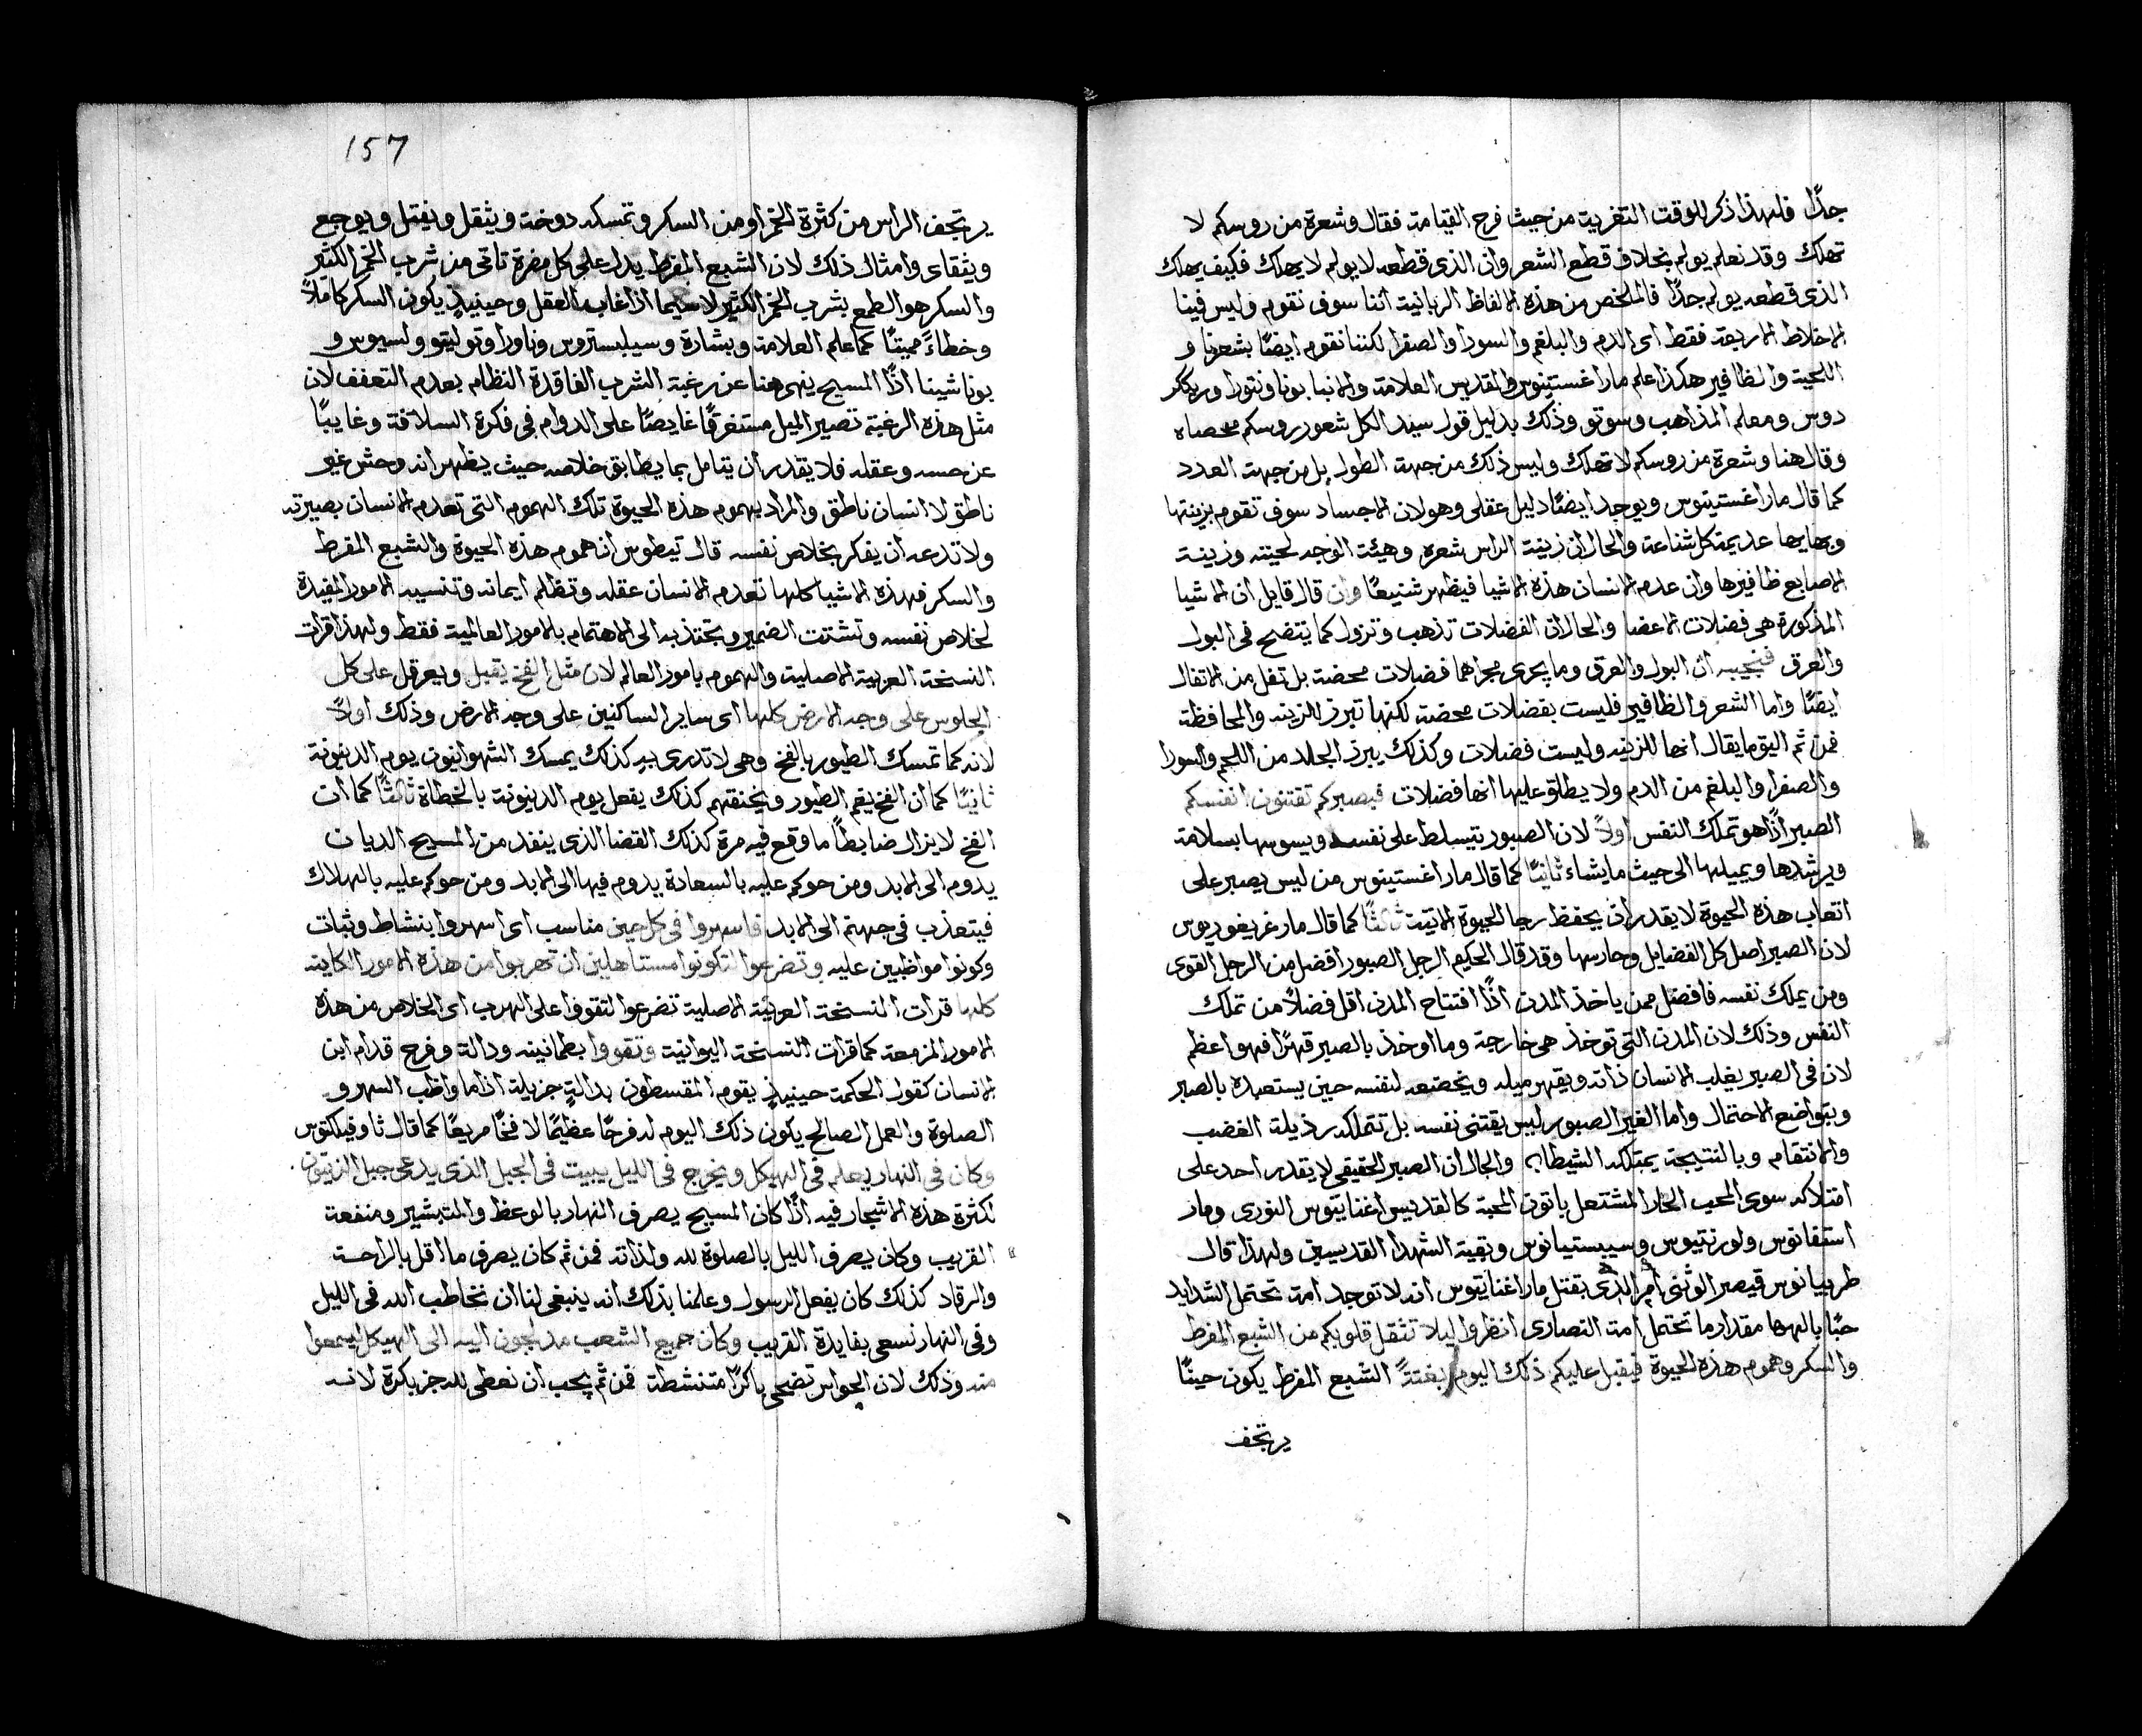 جدًا فلهذا ذكر للوقت التغربة من حيث فرح القيامة فقال وشعرة من روسكم لا
تهلك وقد نعلم يولم بخلاف قطع الشعر وان الذي قطعه لا يولم لا يهلك فكيف يهلك
الذي قطعه يولم جدًا فالملخص من هذه الالفاظ الربانية اننا سوف نقوم وليس فينا
الاخلاط الاربعة فقط اى الدم والبلغم والسودا والصفرا لكننا نقوم ايضًا بشعرنا و
اللحية والظافير هكذا علم مار اغستينوس والقديس العلامة والانبا بوناونتورا وريكار
دوس ومعلم المذاهب وسوتو وذلك بدليل قول سيد الكل شعور روسكم محصاه
وقال هنا وشعرة من روسكم لا تهلك وليس ذلك من جهة الطول بل من جهة العدد
كما قال مار اغستينوس ويوجد ايضًا دليل عقلى وهو لان الاجساد سوف تقوم بزينتها
وبهايها عديمة كل شناعة والحال ان زينة الراس شعره وهيئة الوجه لحيته وزينة
الاصابع ظافيرها وان عدم الانسان هذه الاشيا فيظهر شنيعًا وان قال قايل ان الاشيا
المذكورة هى فضلات الاعضا والحال ان الفضلات تذهب وتزول كما يتضح فى البول
والعرق فنجيبه ان البول والعرق وما يجرى مجراهما فضلات محضة بل تفل من الاتفال
ايضًا واما الشعر والظافير فليست بفضلات محضة لكنها تبرز للزينه والمحافظة
فمن ثم اليق ما يقال انها للزينه وليست فضلات وكذلك يبرز الجلد من اللحم والسودا
والصفرا والبلغم من الدم ولا يطلق عليها انها فضلات فبصبركم تقتنون انفسكم
الصبر اذًا هو تملك النفس اولاً لان الصبور يتسلط على نفسه ويسوسها بسلامة
ويرشدها ويميلها الى حيث ما يشاء ثانيًا كما قال مار اغستينوس من ليس يصبر على
اتعاب هذه الحيوة لا يقدر ان يحفظ رجا الحيوة الاتية ثالثًا كما قال مار غريغوريوس
لان الصبر اصل كل الفضايل وحارسها وقد قال الحكيم الرجل الصبور افضل من الرجل القوى
ومن يملك نفسه فافضل ممن ياخذ المدن اذًا افتتاح المدن اقل فضلاً من تملك
النفس وذلك لان المدن التى توخذ هى خارجة وما اوخذ بالصبر قهرًا فهو اعظم
لان فى الصبر يغلب الانسان ذاته ويقهر ميله ويخضعه لنفسه حين يستعبده بالصبر
وبتواضع الاحتمال واما الغير الصبور ليس يقتنى نفسه بل تتملكه رذيلة الغضب
والانتقام وبالنتيجة يمتلكه الشيطان والحال ان الصبر الحقيقى لا يقدر احد على
امتلاكه سوى المحب الحار المشتعل باتون المحبة كالقديس اغناتيوس النورى ومار
استفانوس ولورنتيوس وسيبستيانوس وبقية الشهدا القديسين ولهذا قال
طريبيانوس قيصر الوثنى امر الذى بقتل مار اغناتيوس انه لا توجد امة تحتمل الشدايد
حبًا بالهها مقدار ما تحتمل امة النصارى انظروا ليلا تثقل قلوبكم من الشبع المفرط
والسكر وهموم هذه الحيوة فيقبل عليكم ذلك اليوم بغتةً الشبع المفرط يكون حينًا
يرتجف
157
يرتجف الراس من كثرة الخمر او من السكر وتمسكه دوخة ويثقل وينفتل ويوجع
ويتقاى وامثال ذلك لان الشبع المفرط يدل على كل مضرة تاتى من شرب الخمر الكثير
والسكر هو الطمع بشرب الخمر الكثير لا سيما اذا غاب العقل وحينيذٍ يكون السكر كاملاً
وخطاءً مميتًا كما علم العلامة وبشارة وسيلبستروس وناورا وتوليتو ولسيوس و
بوناشينا اذًا المسيح ينهى هنا عن رغبة الشرب الفاقدة النظام بعدم التعفف لان
مثل هذه الرغبة تصير الميل مستغرقًا غايصًا على الدوام فى فكرة السلافة وغايبًا
عن حسه وعقله فلا يقدر ان يتامل بما يطابق خلاصه حيث يظهر انه وحش غير
ناطق لا انسان ناطق والمراد بهموم هذه الحيوة تلك الهموم التى تعدم الانسان بصيرته
ولا تدعه ان يفكر بخلاص نفسه قال تيطوس ان هموم هذه الحيوة والشبع المفرط
والسكر فهذه الاشيا كلها تعدم الانسان عقله وتظلم ايمانه وتنسيه الامور المفيدة
لخلاص نفسه وتشتت الضمير وتجتذبه الى الاهتمام بالامور العالمية فقط ولهذا قرات
النسخة العربية الاصلية والهموم بامور العالم لان مثل الفخ يقبل ويعرقل على كل
الجلوس على وجه الارض كلها اى ساير الساكنين على وجه الارض وذلك اولاً
لانه كما تمسك الطيور بالفخ وهى لا تدرى بهِ كذلك يمسك الشهوانيون يوم الدينونة
ثانيًا كما ان الفخ يقم الطيور ويخنقهم كذلك يفعل يوم الدينونة بالخطاة ثالثًا كما ان
الفخ لا يزال ضابطًا ما وقع فيه مرة كذلك القضا الذى ينفد من المسيح الديان
يدوم الى الابد ومن حوكم عليه بالسعادة يدوم فيها الى الابد ومن حوكم عليه بالهلاك
فيتعذب فى جهنم الى الابد فاسهروا فى كل حين مناسب اى اسهروا بنشاط وثبات
وكونوا مواظبين عليه وتضرعوا لتكونوا مستاهلين ان تهربوا من هذه الامور الكاينه
كلها قرات النسخة العربية الاصلية تضرعوا لتقووا على الهرب اى الخلاص من هذه
الامور المزمعة كما قرات النسخة اليوانية وتقووا بطمانينه ودالة وفرح قدام ابن
الانسان كقول الحكمة حينيذٍ يقوم المقسطون بدالةٍ جزيلة اذا ما واظب السهر و
الصلوة والعمل الصالح يكون ذلك اليوم له فرحًا عظيمًا لا فخًا مريعًا كما قال ثاوفيلكتوس
وكان فى النهار يعلم فى الهيكل ويخرج فى الليل يبيت فى الجبل الذى يدعى جبل الزيتون
لكثرة هذه الاشجار فيه اذًا كان المسيح يصرف النهار بالوعظ والتبشير ومنفعة
القريب وكان يصرف الليل بالصلوة لله ولذاته فمن ثم كان يصرف ما اقل بالراحة
والرقاد كذلك كان يفعل الرسول وعلمنا بذلك انه ينبغى لنا ان نخاطب الله فى الليل
وفى النهار نسعى بفايدة القريب وكان جميع الشعب يدلجون اليه الى الهيكل ليسمعوا
منه وذلك لان الحواس تضحى باكرًا متنشطة فمن ثم يجب ان نعطى لله جز بكرة لانه